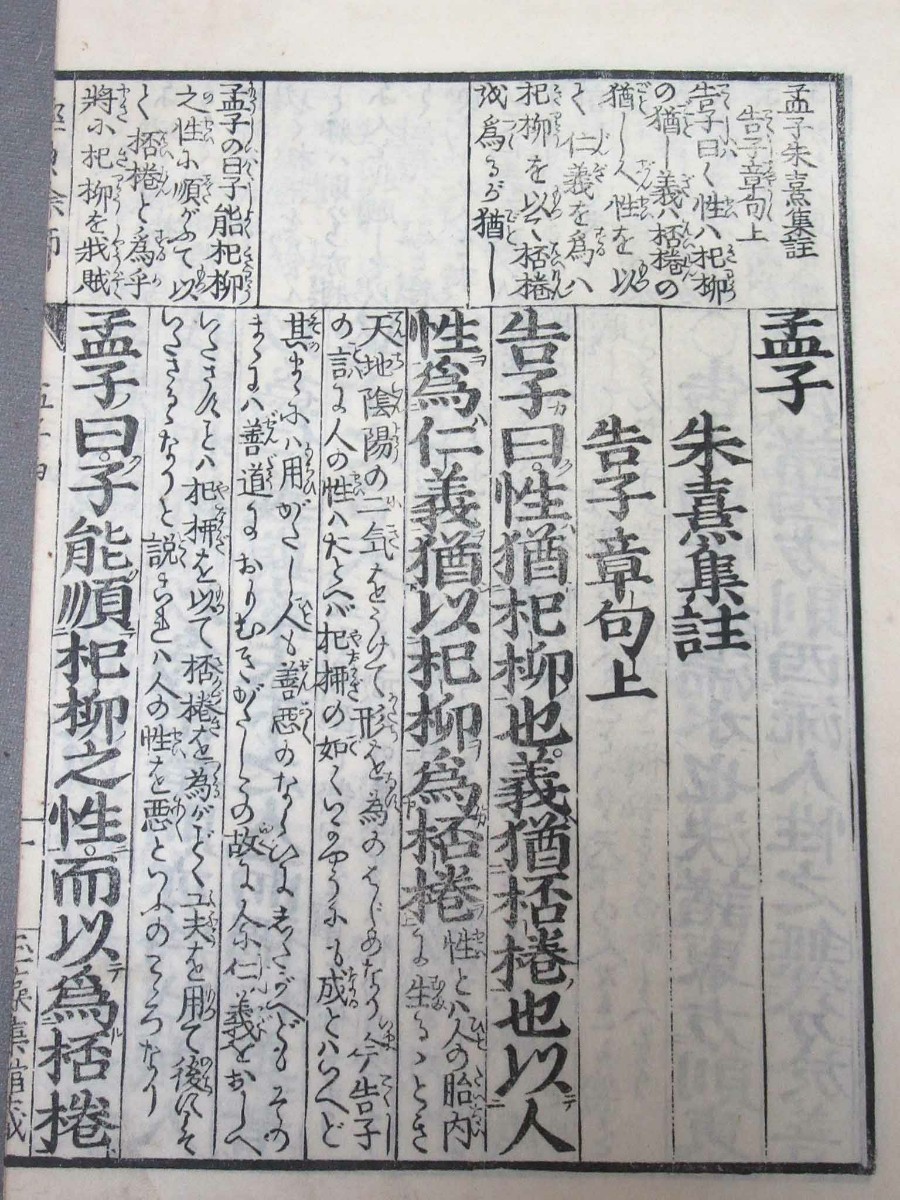 孟子朱熹集註
告子章句上
告子曰く性ハ杞柳
の猶し義ハ桮棬の
猶し人性を以
て仁義を為ハ
杞柳を以て桮棬
を為るが猶し
孟子の曰子能杞柳
之性に順がふて以
て桮棬と為乎
將に杞柳を戕賊
孟子
朱熹集註
告子章句上
告子曰性猶杞柳也義猶桮棬也以人
性爲仁義猶以杞柳爲桮棬
性とハ人の胎内
に生るゝとき
天地陰陽の二気をうけて形を為のはじめなり今告子
の言に人の性ハたとへバ杞柳の如くいかやうにも成とハいへど
其まゝにハ用がたし人も善悪のならひにしたがへどもその
まゝにハ善道におもむきがたしの故に今仁義をおしへ
杞柳を以て桮棬を為がごとく工夫を用て後に
説これハ人の性を悪といふのこゝろなり
孟子曰子能順杞柳之性而以爲桮棬